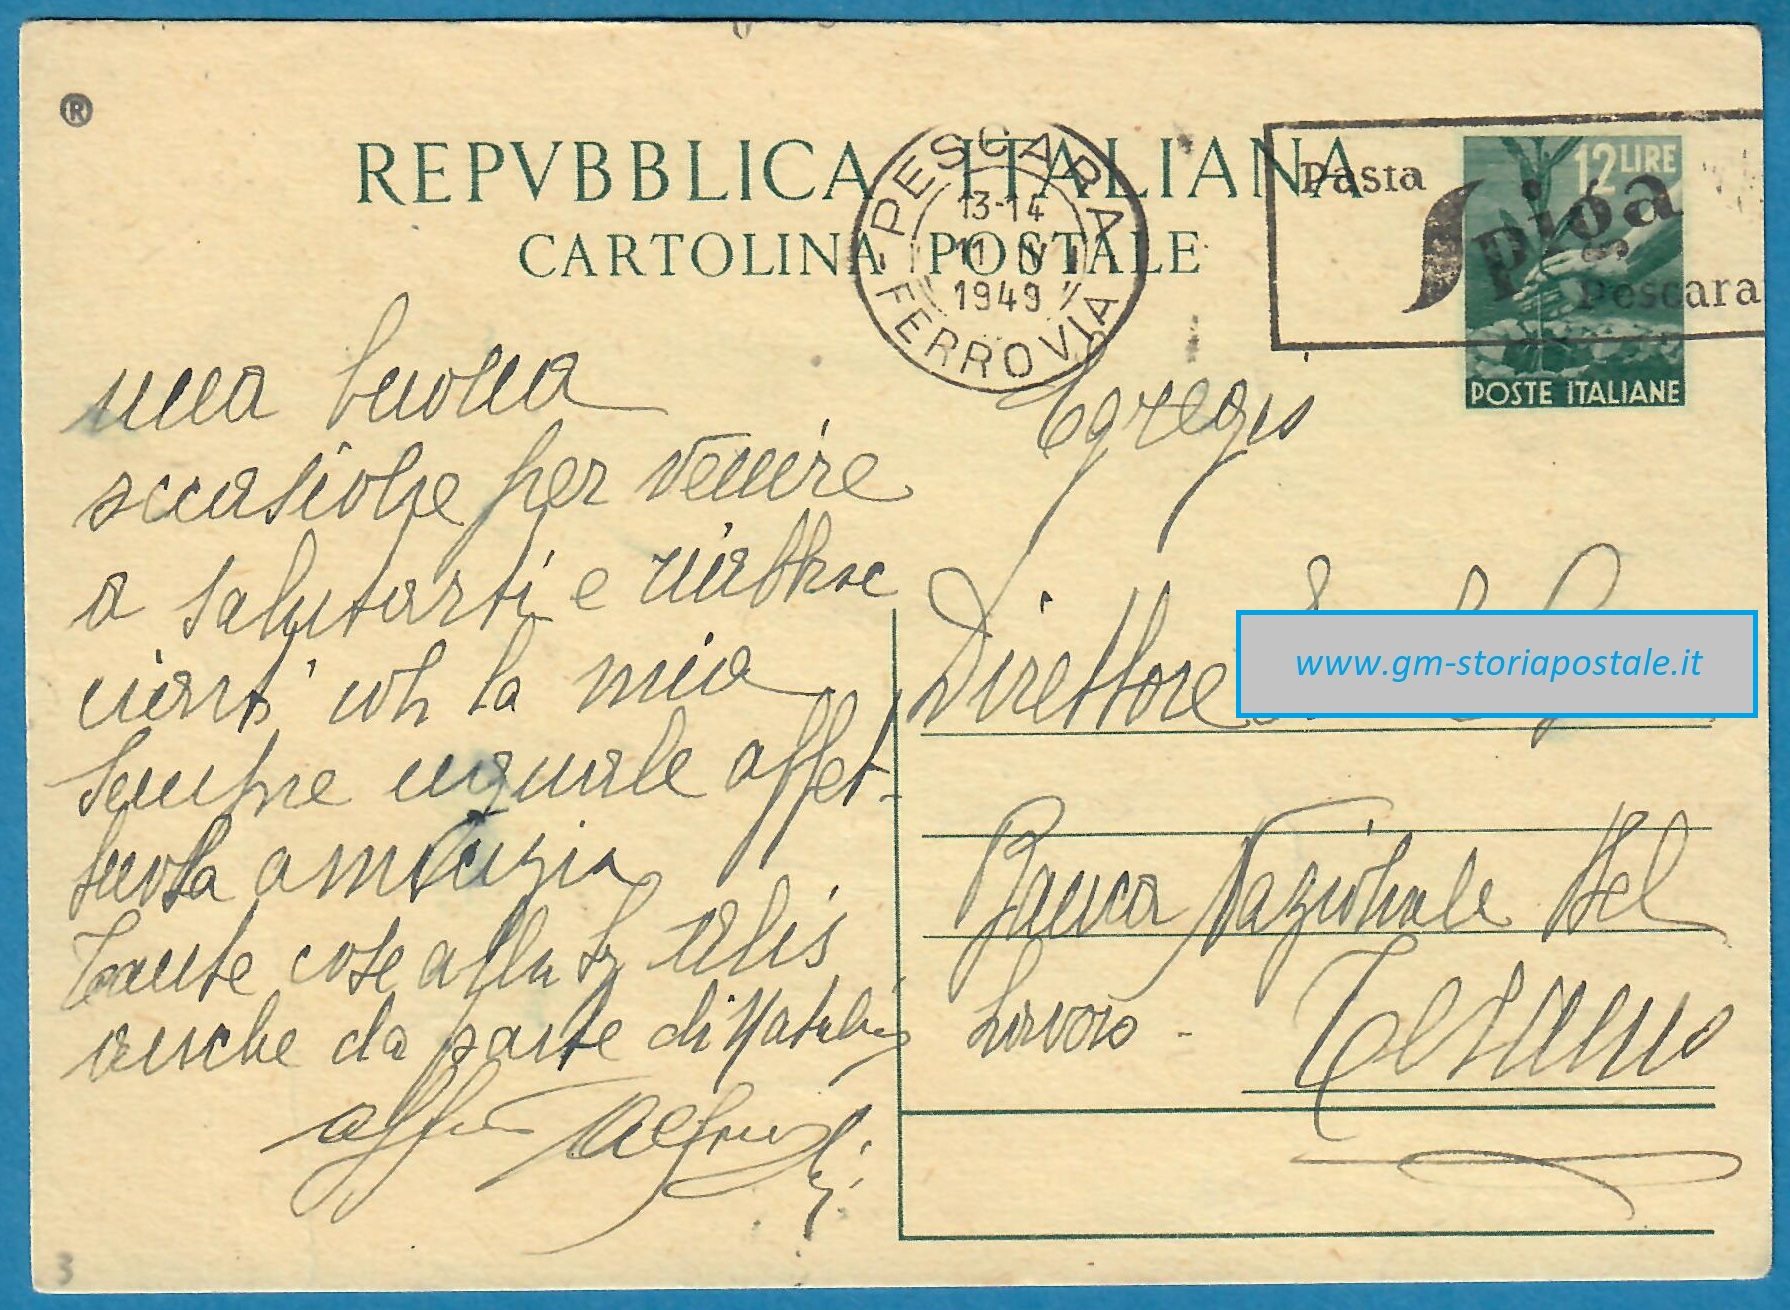 ®
REPVBBLICA ITALIANA
CARTOLINA POSTALE
PESCARA
13-14
11 IV
1949
FERROVIA
Pasta
Spiga
Pescara
12 LIRE
POSTE ITALIANE
una buona
occasione per venire
a salutarti e riabbrac
ciarti con la mia
sempre uguale affet-
tuosa amicizia
Tante cose alla
anche da parte di
Alfredo
Egregio
Direttore
www.gm-storiapostale.it
Banca Nazionale del
Lavoro -
Teramo
3